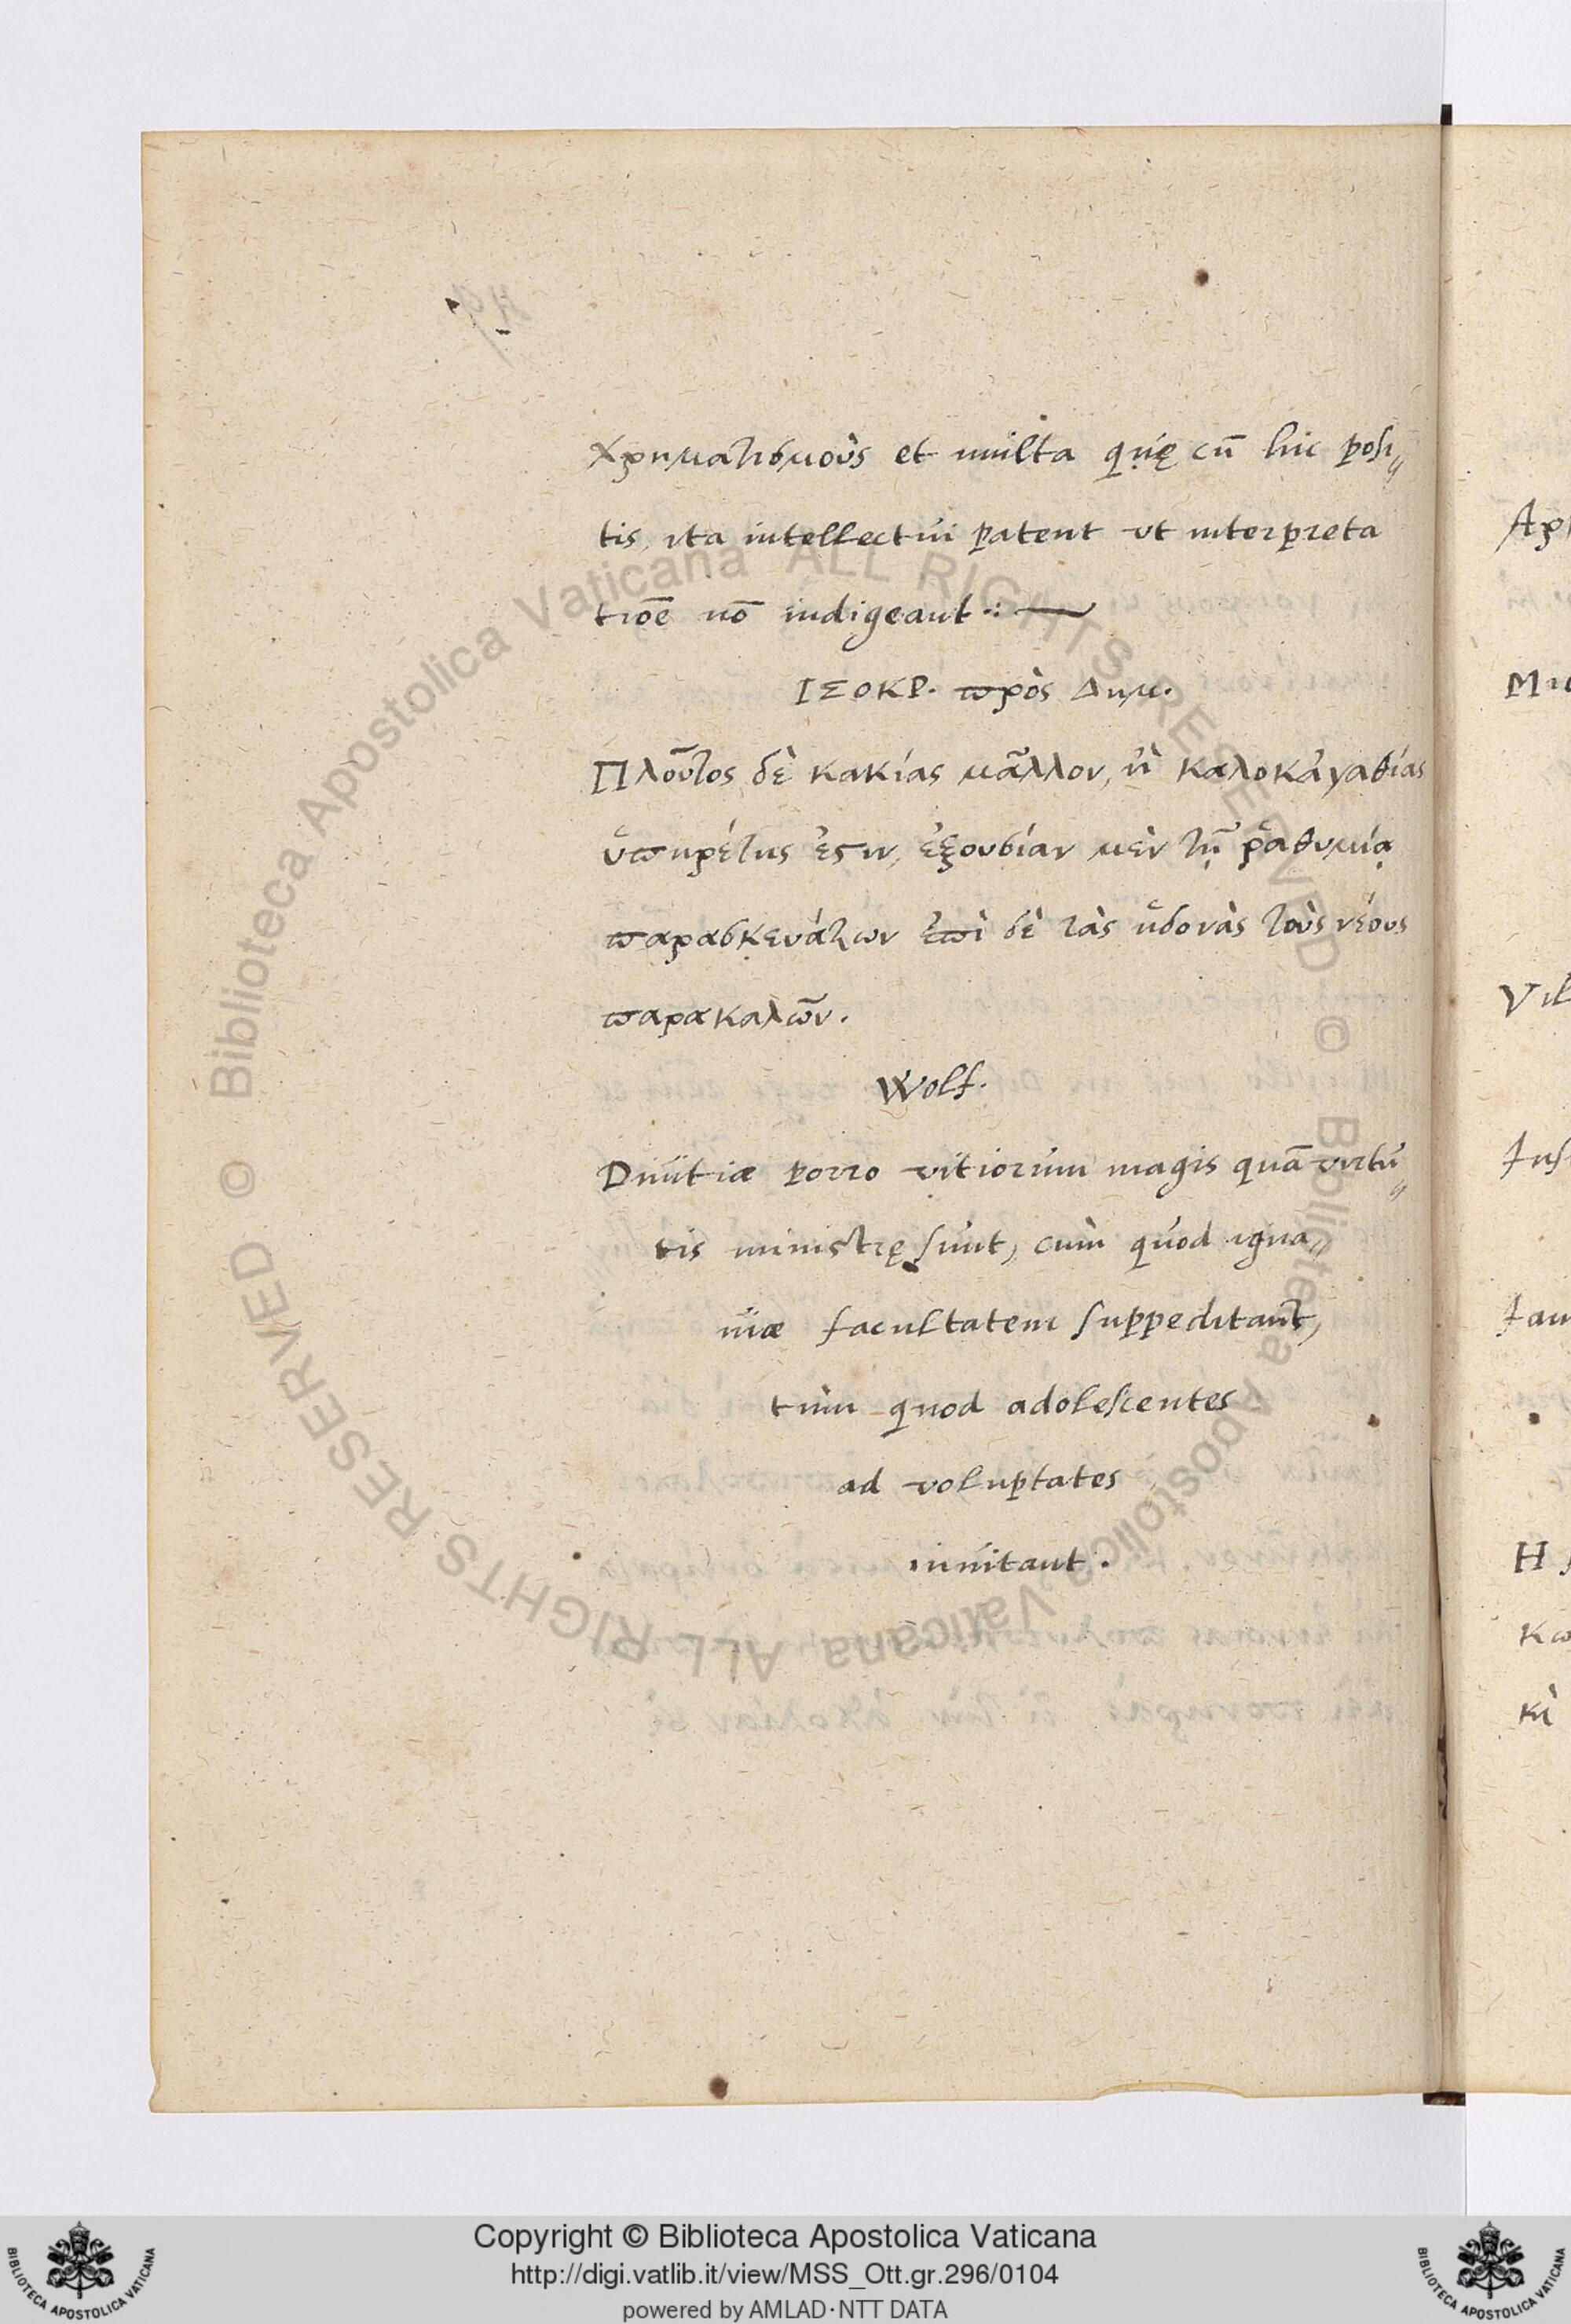 χρηματισμοὺς et multa quę cū hic posi„
tis, ita intellectui patent vt interpreta
tioē nō indigeant ∴ —
ΙΣΟΚΡ. πρὸς Δημ.
Πλοῦτος δὲ κακίας μᾶλλον, ἢ καλοκἀγαθίας
ὑπηρέτης ἐστιν, ἐξουσίαν μὲν τῇ ῥᾳθυμίᾳ
παρασκευάζων ἐπὶ δὲ τὰς ἡδονὰς τοὺς νέους
παρακαλῶν.
Wolf.
Diuitiæ porro vitiorum magis quā virtu„
tis ministrę sunt, cum quod igna„
uiæ facultatem suppeditant,
tum quod adolescentes
ad voluptates
inuitant.
Αρ
Μι
Vil
Ins
Iam
Η
Κω
κὶ
© Biblioteca Apostolica Vaticana ALL RIGHTS RESERVED © Biblioteca Apostolica Vaticana ALL RIGHTS RESERVED
Copyright © Biblioteca Apostolica Vaticana
http://digi.vatlib.it/view/MSS_Ott.gr.296/0104
powered by AMLAD·NTT DATA
BIBLIOTECA APOSTOLICA VATICANA
BIBLIOTECA APOSTOLICA VATICANA